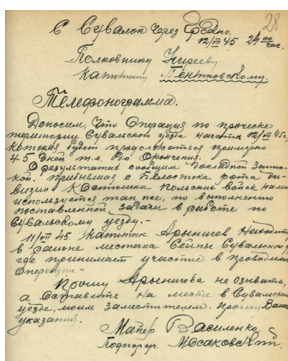 28
С Сувалок через Гродно.
12/VII 45 24 00 час.
Полковнику
Капитану
Телефонограмма.
Доносим, что операция по проческе
территории Сувалской уезда начата 12/VII 45г.
которая будет продолжаться примерно
4-5 дней т.е. до окончания.
О результатах сообщим
кой прибывшая с Белостока рота ди-
визии Костюшки Польских войск нами
используется также, по выполнению
поставленной задачи в работе по
Сувалскому уезду.-
11/VII 45 Капитан Находится
в районе местечка Сейны Сувалского у.
где принимает участие в проводимой
операции.
Прошу не отзывать,
а оставить на месте в Сувалском
уезде, моим заместителем. Прошу Ваших
указаний.
Майор Василенко